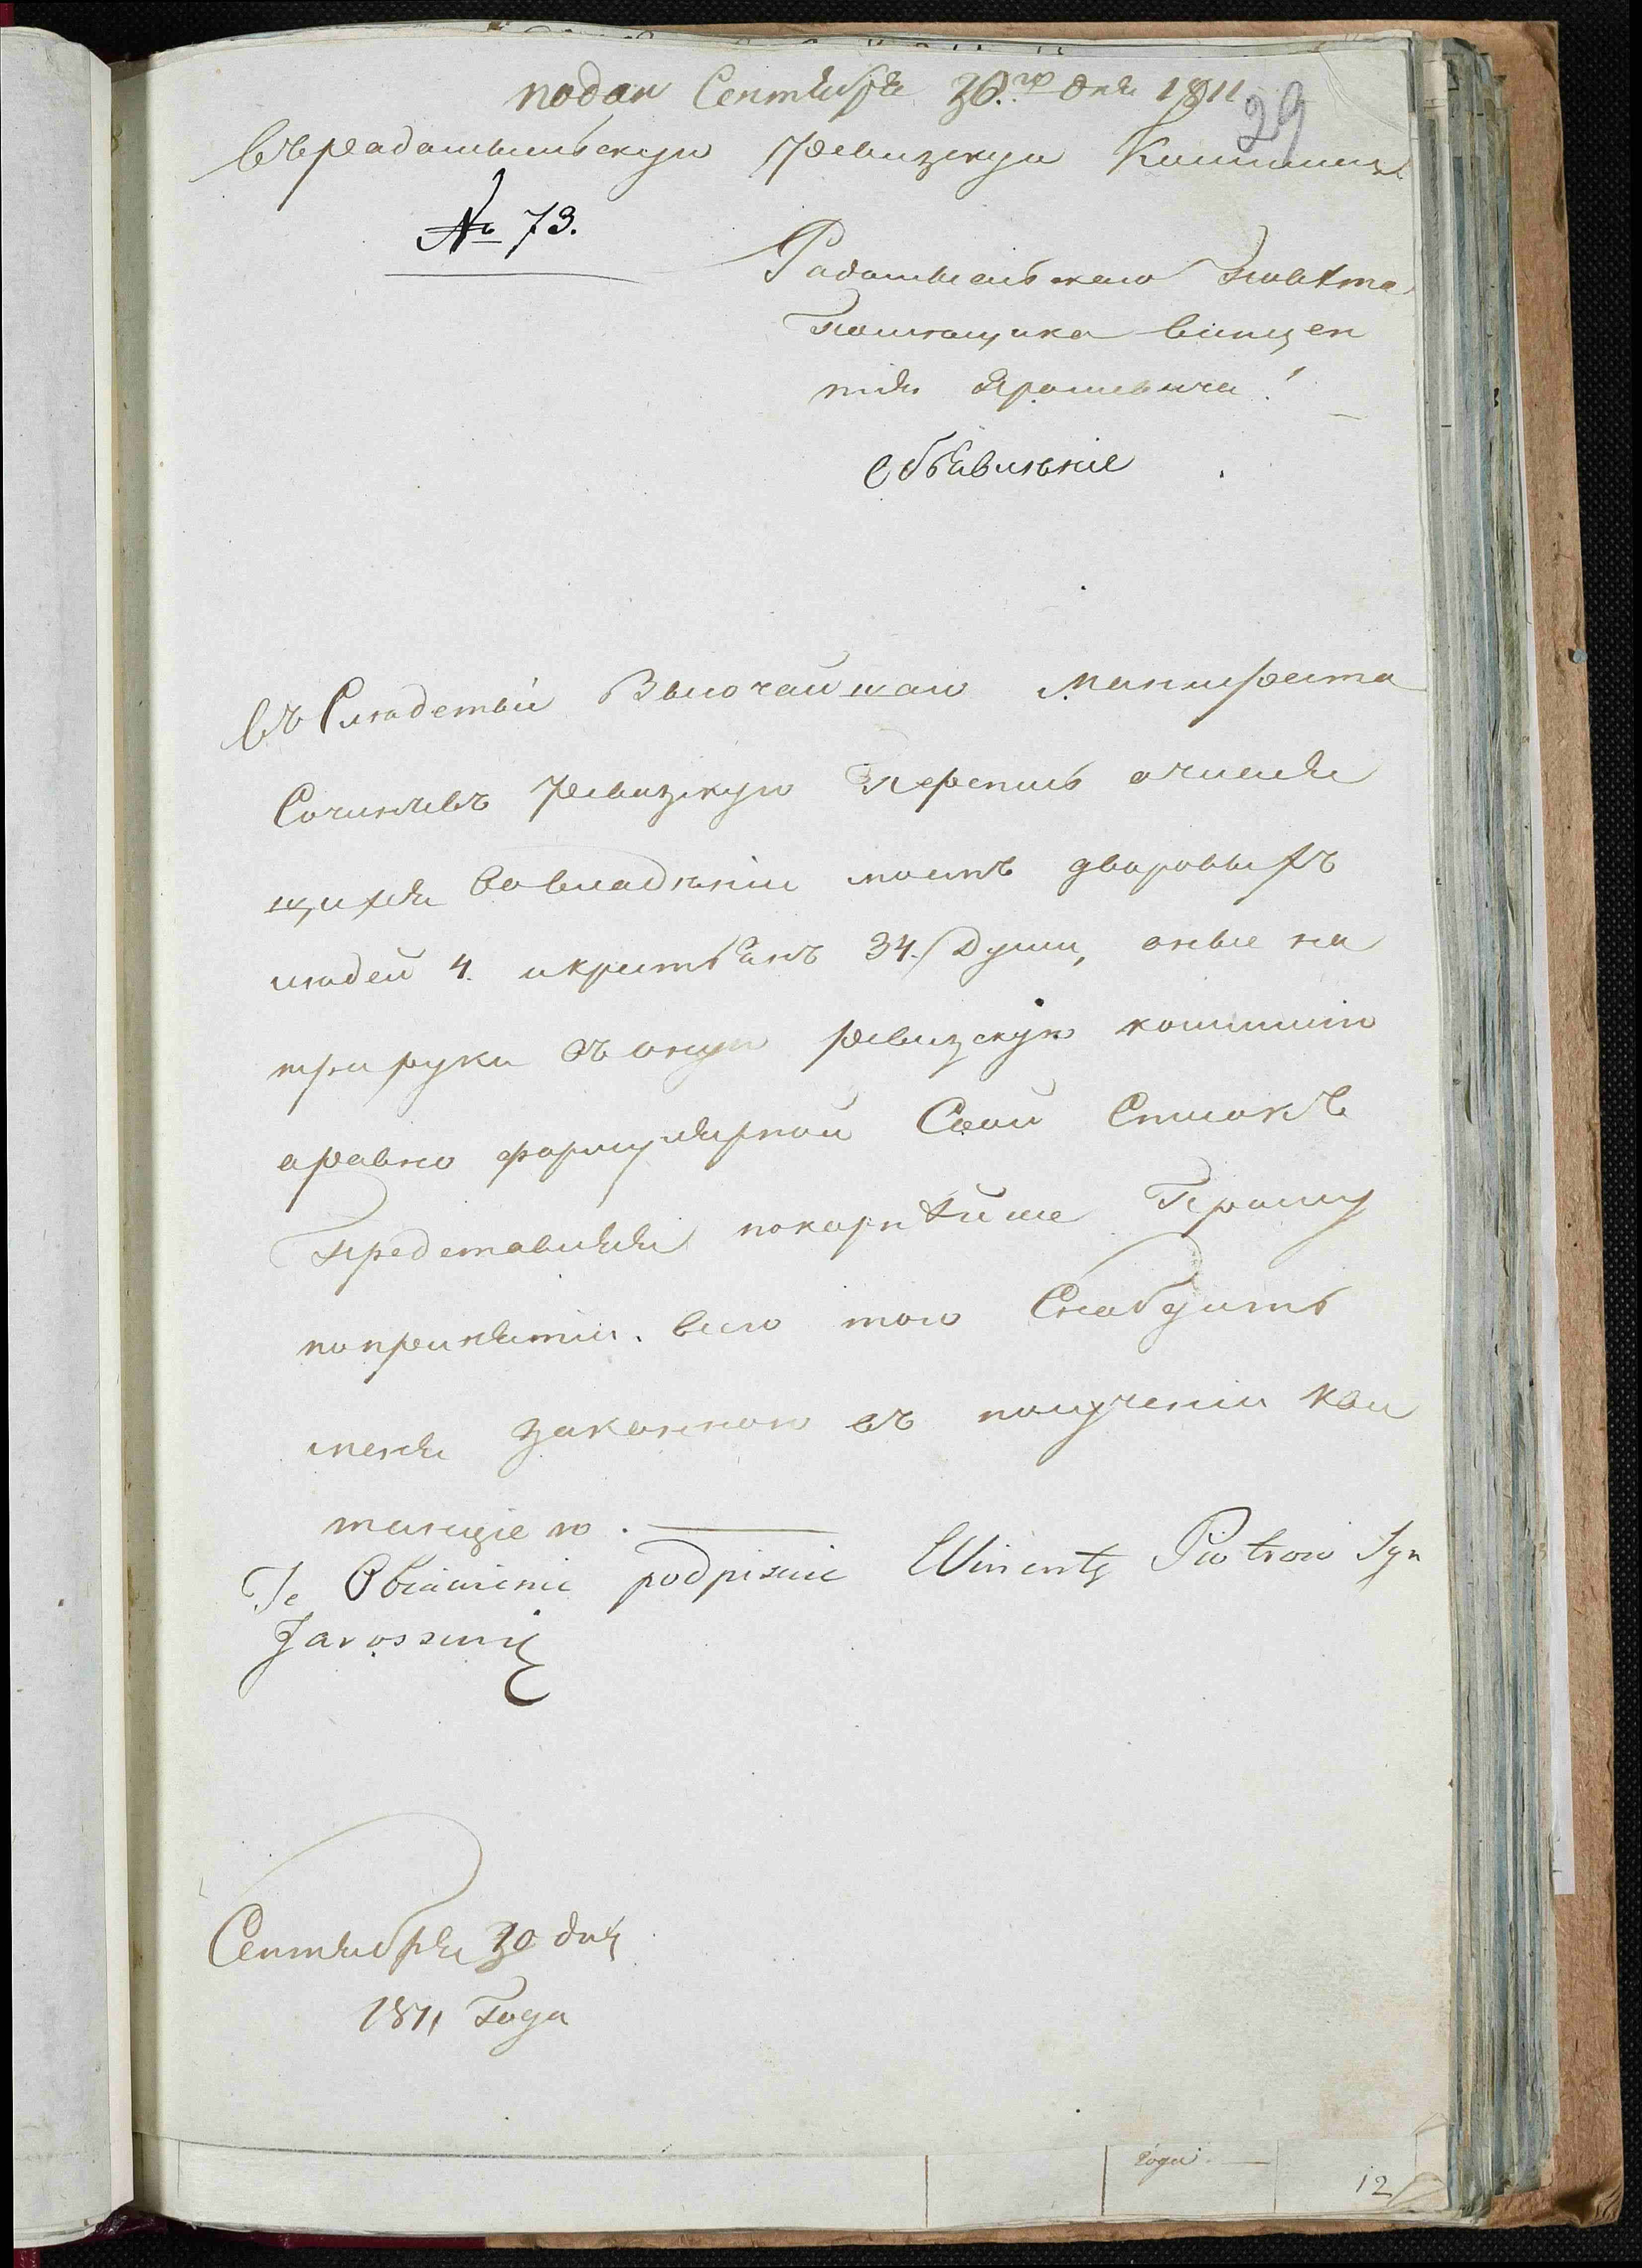 подан Сентября 30.го дня 1811
29
Въ радомысльскую ревизскую Комиши
№ 73.
Радомысльскаго Повѣта
Помещика Винцен
тія Ярошевича!
Объявленіе
въ Следствіи Высочайшаго Манифеста
Сочинивъ ревизскую Перепись очисля
щихся во владѣніи моемъ дворовыхъ
людей 4. икрестьянъ 34. Души, оные на
три руки въ оную ревизскую комишию
аравно формулярной Свой Списокъ
Представляя покорнѣйше Прошу
попринятіи. всего того Снабдить
меня законною въ полученіи кви
танціею.
Je Obiawienie podpisuie Wincenty Piotrow Syn
Jaroszewicz
Сентября 30 дня
1811 Года
года
12